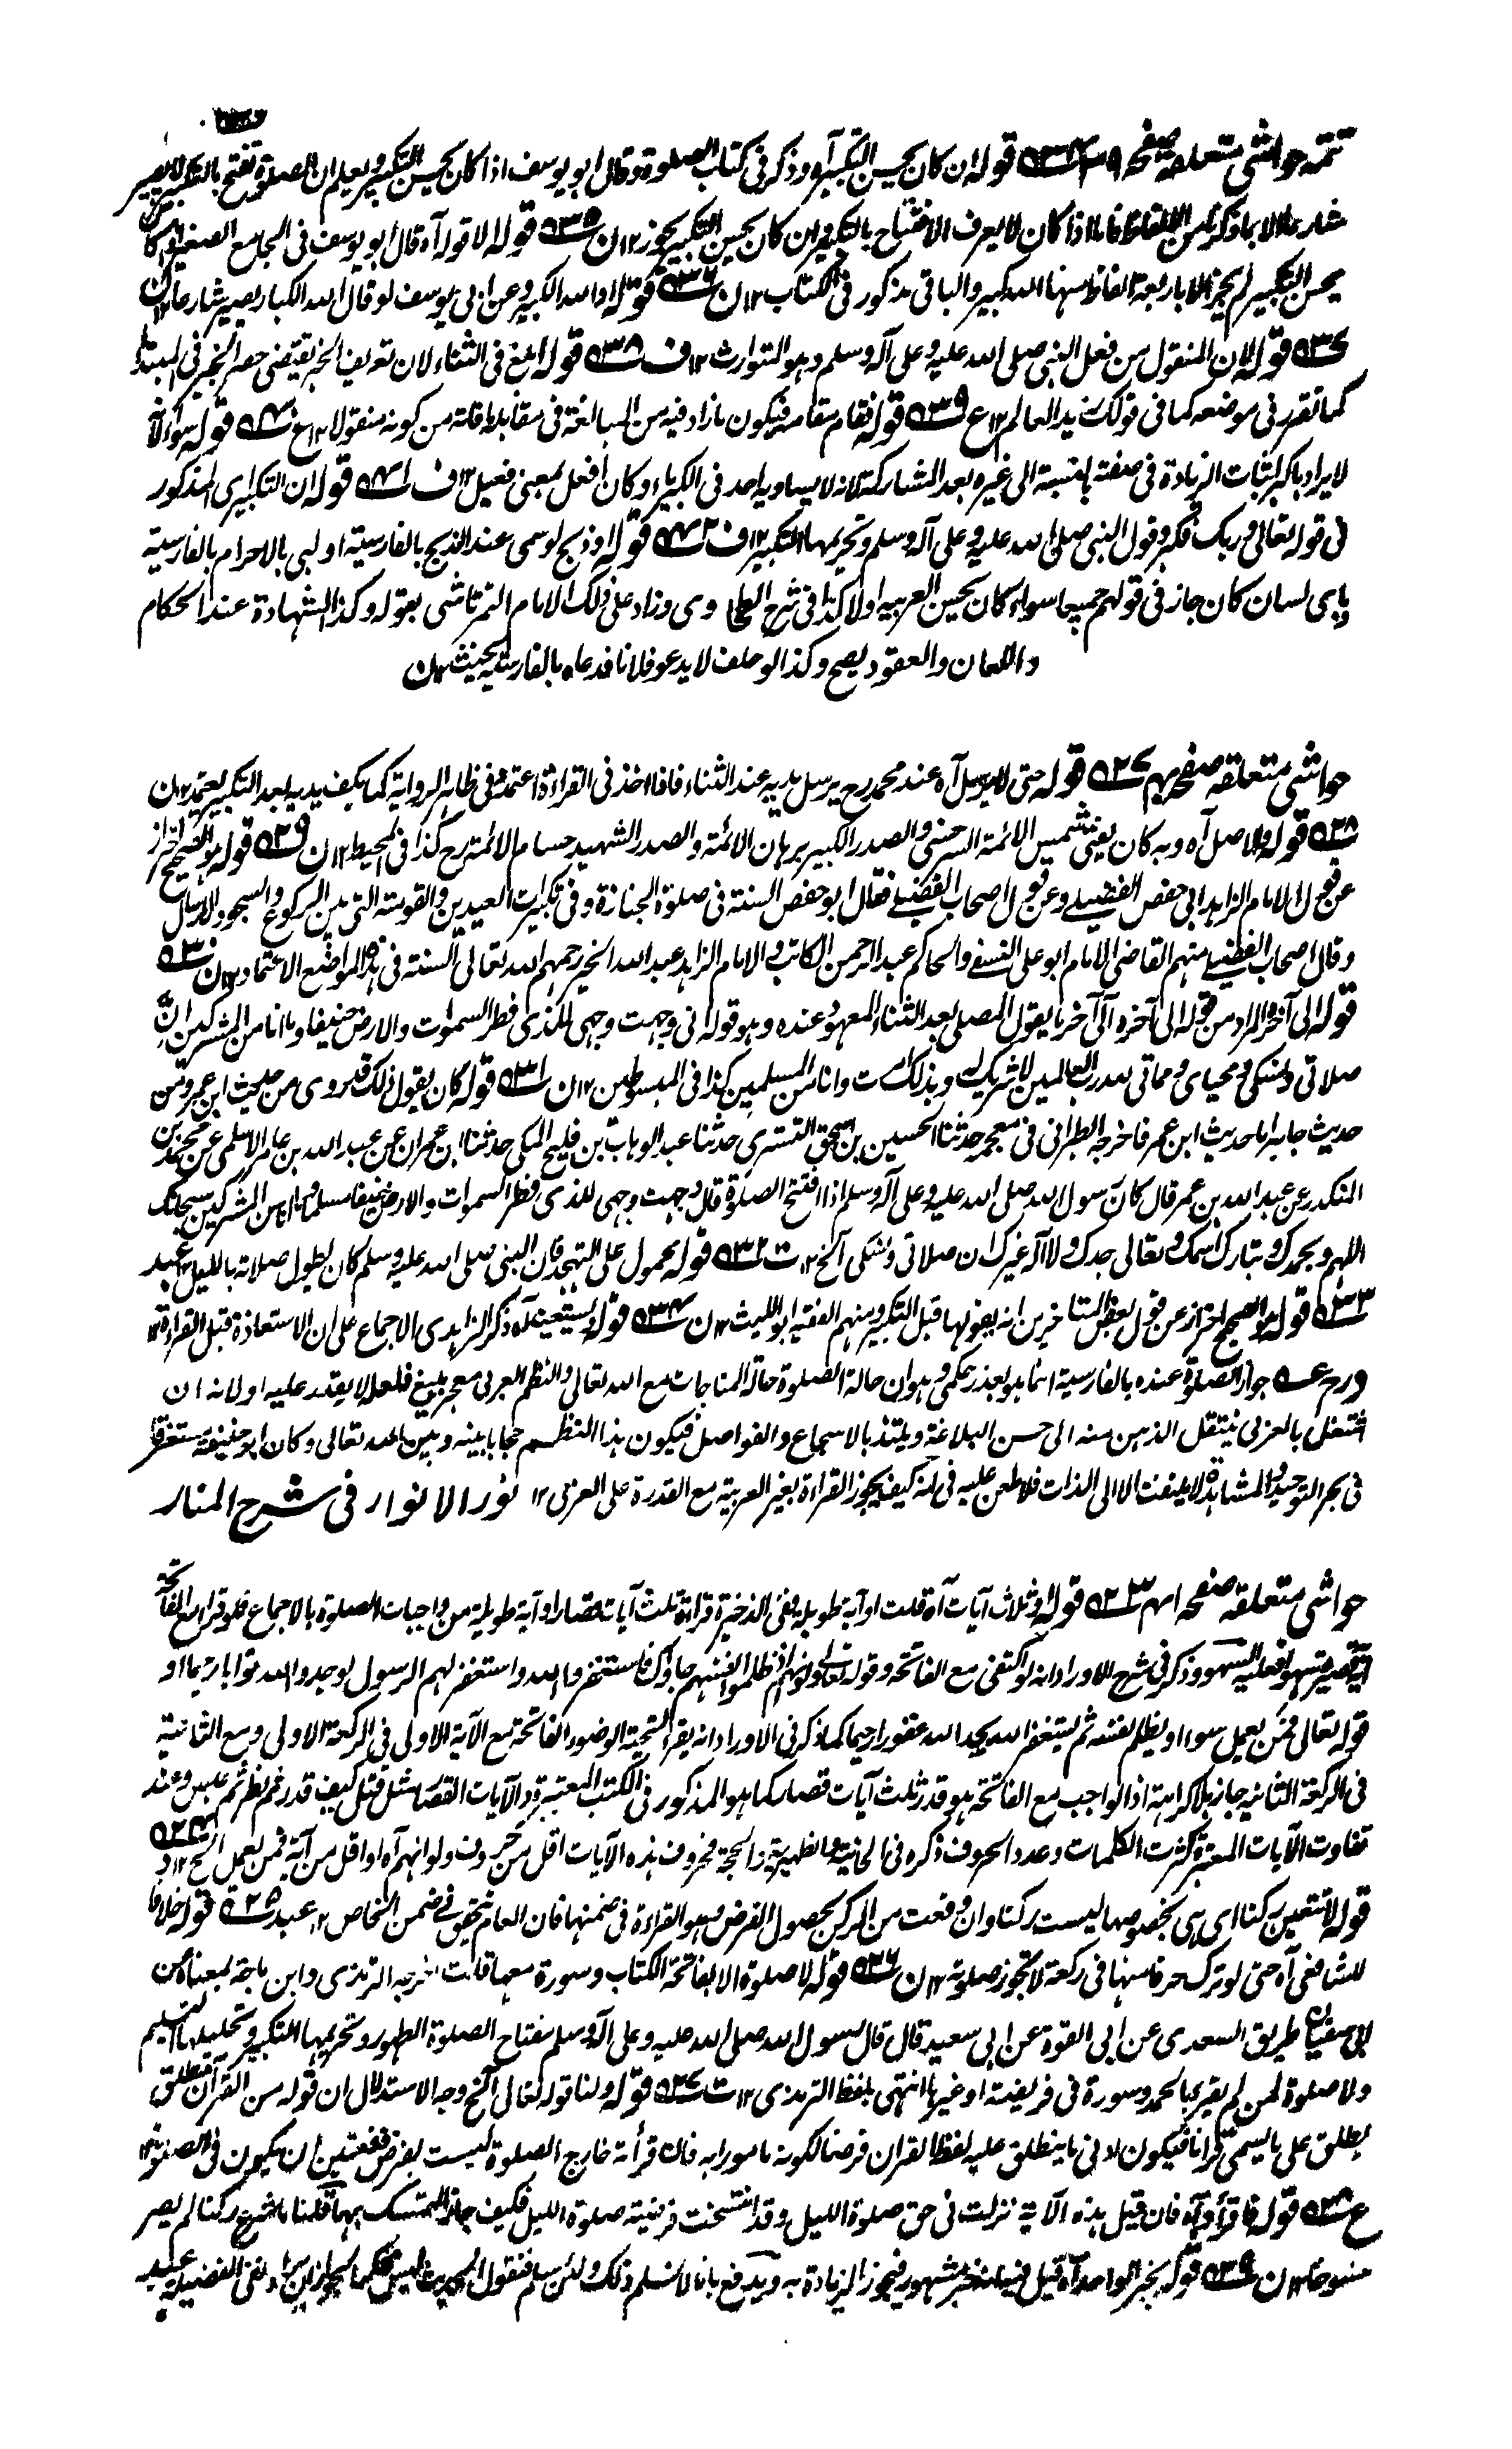 تتمه حواشی متعلقه صفحه ۳۹ ۵۳۴ قوله ان كان يحسن التكبير آه وذكر فی كتاب الصلوة وقال ابو يوسف اذا كان يحسن التكبير ويعلم ان الصلوة تفتح بالتكبير لا يصير
شارعا الا بما ذكرنا من الالفاظ فاما اذا كان لا يعرف الافتتاح بالتكبير وان كان يحسن التكبير يجوز ۱۲ ن ۵۳۵ قوله الا قوله آه قال ابو يوسف فی الجامع الصغير ان كان
يحسن التكبير لم يجز الا باربعة الفاظ منها الله كبير والباقی مذكور فی الكتاب ۱۲ ن ۵۳۶ قوله او الله الكبير وعن ابی يوسف لو قال الله الكبار يصير شارعا ۱۲ ن
۵۳۷ قوله لان المنقول من فعل النبی صلی الله عليه وعلی آله وسلم وهو المتوارث ۱۲ ف ۵۳۸ قوله ابلغ فی الثناء لان تعريف الخبر يقتضی حصر الخبر فی المبتدأ
كما تقرر فی موضعه كما فی قولك زيد العالم ۱۲ ع ۵۳۹ قوله فقام مقامه فيكون ما زاد فيه من المبالغة فی مقابلة ما فاته من كونه منقولا ۱۲ ع ۵۴۰ قوله سواء لانه
لا يراد باكبر اثبات الزيادة فی صفته بالنسبة الی غيره بعد المشاركة لانه لا يساويه احد فی الكبرياء وكان افعل بمعنی فعيل ۱۲ ف ۵۴۱ قوله ان التكبير ای المذكور
فی قوله تعالی وربك فكبر وقول النبی صلی الله عليه وعلی آله وسلم وتحريمها التكبير ۱۲ ف ۵۴۲ قوله او ذبح لو سمی عند الذبح بالفارسية او لبی بالاحرام بالفارسية
بای لسان كان جاز فی قولهم جميعا سواء كان يحسن العربيه اولا كذا فی شرح الطحاوی وزاد علی ذلك الامام التمرتاشی بقوله وكذا الشهادة عند الحكام
واللعان والعقود يصح وكذا لو حلف لا يدعو فلانا فدعاه بالفارسية يحنث ۱۲ ن
حواشی متعلقه صفحه ۴۰ ۵۲۷ قوله حتی لا يرسل آه عند محمد رح يرسل يديه عند الثناء فاذا اخذ فی القراءة اعتمد فی ظاهر الرواية كما يكف يديه بعد التكبير يعتمد ۱۲ ن
۵۲۸ قوله والاصل آه وبه كان يفتی شمس الائمة السرخسی والصدر الكبير برهان الائمة والصدر الشهيد حسام الائمة رح كذا فی المحيط ۱۲ ن ۵۲۹ قوله هو الصحيح احتراز
عن قول الامام الزاهد ابی حفص الفضلی وعن قول اصحاب الفضلی فقال ابو حفص السنة فی صلوة الجنازة وفی تكبيرات العيدين والقومة التی بين الركوع والسجود الارسال
وقال اصحاب الفضلی منهم القاضی الامام ابو علی النسفی والحاكم عبد الرحمن الكاتب والامام الزاهد عبد الله الخير رحمهم الله تعالی السنة فی هذه المواضع الاعتماد ۱۲ ن ۵۳۰
قوله الی آخره والمراد من قوله الی آخره الی آخر ما يقول المصلی بعد الثناء المعهود عنده وهو قوله انی وجهت وجهی للذی فطر السموات والارض حنيفا وما انا من المشركين انّ
صلاتی ونسكی ومحيای ومماتی لله رب العالمين لا شريك له وبذلك امرت وانا من المسلمين كذا فی المبسوطين ۱۲ ن ۵۳۱ قوله كان يقول ذلك قد روی من حديث ابن عمر ومن
حديث جابر اما حديث ابن عمر فاخرجه الطبرانی فی معجمه حدثنا الحسين بن اسحق التستری حدثنا عبد الوهاب بن فليح المكی حدثنا ابن عمران عن عبد الله بن عامر الاسلمی عن محمد بن
المنكدر عن عبد الله بن عمر قال كان رسول الله صلی الله عليه وعلی آله وسلم اذا افتتح الصلوة قال وجهت وجهی للذی فطر السموات والارض حنيفا مسلما وما انا من المشركين سبحانك
اللهم وبحمدك وتبارك اسمك وتعالی جدك ولا اله غيرك ان صلاتی ونسكی الخ ۱۲ ت ۵۳۲ قوله محمول علی التهجد فان النبی صلی الله عليه وسلم كان يطول صلاته بالليل ۱۲ عبد
۵۳۳ قوله هو الصحيح احتراز عن قول بعض المتاخرين انه يقولها قبل التكبير ومنهم الفقيه ابو الليث ۱۲ ن ۵۳۴ قوله ويستعيذ آه ذكر الزاهدی الاجماع علی ان الاستعاذة قبل القراءة ۱۲
ورح عه جواز الصلوة عنده بالفارسية انما هو بعذر حكمی وهو ان حالة الصلوة حالة المناجات مع الله تعالی والنظم العربی معجز بليغ فلعله لا يقدر عليه او لانه ان
اشتغل بالعربی ينتقل الذهن منه الی حسن البلاغة ويلتذ بالاسجاع والفواصل فيكون هذا النظم حجابا بينه وبين الله تعالی وكان ابو حنيفة مستغرقا
فی بحر التوحيد والمشاهدة لا يلتفت الا الی الذات فلا طعن عليه فی انه كيف يجوز القراءة بغير العربية مع القدرة علی العربی ۱۲ نور الانوار فی شرح المنار
حواشی متعلقه صفحه ۴۱ ۵۲۳ قوله او ثلاث آيات آه قلت او آية طويلة ففی الذخيرة قراءة ثلث آيات قصار او آية طويلة من واجبات الصلوة بالاجماع فلو قرأ مع الفاتحة
آية قصيرة سهوا فعليه السهو وذكر فی شرح الاوراد انه لو اكتفی مع الفاتحه وقوله تعالی ولو انهم اذ ظلموا انفسهم جاؤك فاستغفروا الله واستغفر لهم الرسول لوجدوا الله توابا رحيما او
قوله تعالی فمن يعمل سوءا او يظلم نفسه ثم يستغفر الله يجد الله غفورا رحيما كما ذكر فی الاوراد انه يقرأ لتحية الوضوء الفاتحة مع الآية الاولی فی الركعة الاولی ومع الثانية
فی الركعة الثانية جاز بلا كراهة اذ الواجب مع الفاتحة هو قدر ثلث آيات قصار كما هو المذكور فی الكتب المعتبرة والآيات القصار مثل قتل كيف قدر ثم نظر ثم عبس وعند
تفاوت الآيات المعتبر كثرت الكلمات وعدد الحروف ذكره فی الخانية والظهيرية والحجة فحروف هذه الآيات اقل من حروف ولو انهم آه او اقل من آية فمن يعمل الخ ۱۲ ۵۲۴
قوله لا تتعين ركنا ای هی بخصوصها ليست ركنا وان وقعت من الركن لحصول الفرض وهو القراءة فی ضمنها فان العام يتحقق فی ضمن الخاص ۱۲ عبد ۵۲۵ قوله خلافا
للشافعی آه حتی لو ترك حرفا منها فی ركعة لا تجوز صلوته ۱۲ ن ۵۲۶ قوله لا صلوة الا بفاتحة الكتاب وسورة معها قلت اخرجه الترمذی وابن ماجة بمعناه عن
ابی سفيان طريق السعدی عن ابی سعيد قال قال رسول الله صلی الله عليه وعلی آله وسلم مفتاح الصلوة الطهور وتحريمها التكبير وتحليلها التسليم
ولا صلوة لمن لم يقرأ بالحمد وسورة فی فريضة او غيرها انتهی بلفظ الترمذی ۱۲ ت ۵۲۷ قوله ولنا قوله تعالی الخ وجه الاستدلال ان قوله من القرآن مطلق
يطلق علی ما يسمی قرآنا فيكون ادنی ما ينطلق عليه لفظ القرآن فرضا لكونه مامورا به فان قرأته خارج الصلوة ليست بفرض فتعين ان يكون فی الصلوة ۱۲
ع ۵۲۸ قوله فاقرأوا آه فان قيل هذه الآية نزلت فی حق صلوة الليل وقد انتسخت فرضية صلوة الليل فكيف جاز التمسك بها قلنا ما شرع ركنا لم يصر
منسوخا ۱۲ ن ۵۲۹ قوله بخبر الواحد آه قيل خبر مشهور فيجوز الزيادة به ويدفع بانا لا نسلم ذلك ولئن سلم فنقول الحديث ليس محكما لجواز نفی الفضيلة ۱۲ عبد